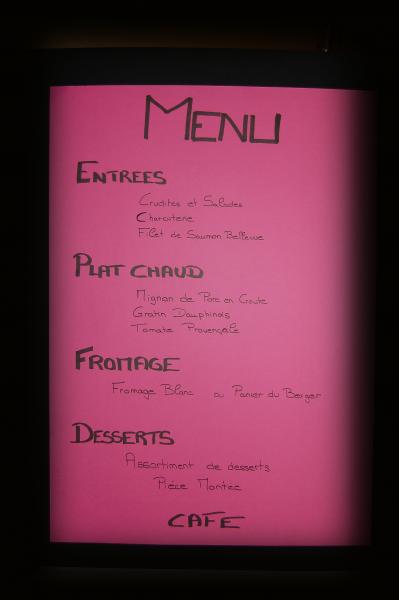 MENU
ENTREES
Crudites et Salades
Charcuterie
Filet de Saumon Bellevue
PLAT CHAUD
Mignon de Porc en Croute
Gratin Dauphinois
Tomate Provençale
FROMAGE
Fromage Blanc ou Panier du Berger
DESSERTS
Assortiment de desserts
Pièce Montée
CAFE